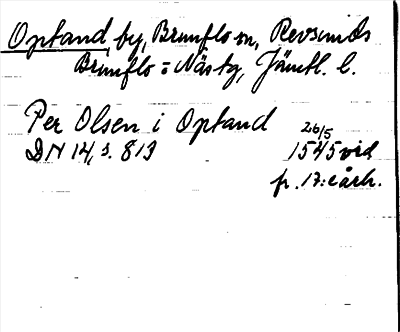 Optand, by, Brunflo sn, Revsunds
Brunflo o Näs tg, Jämtl. l.
Per Olsen i Optand 26/5
DN 14, s. 813 1545 vid
fr. 17:e årh.